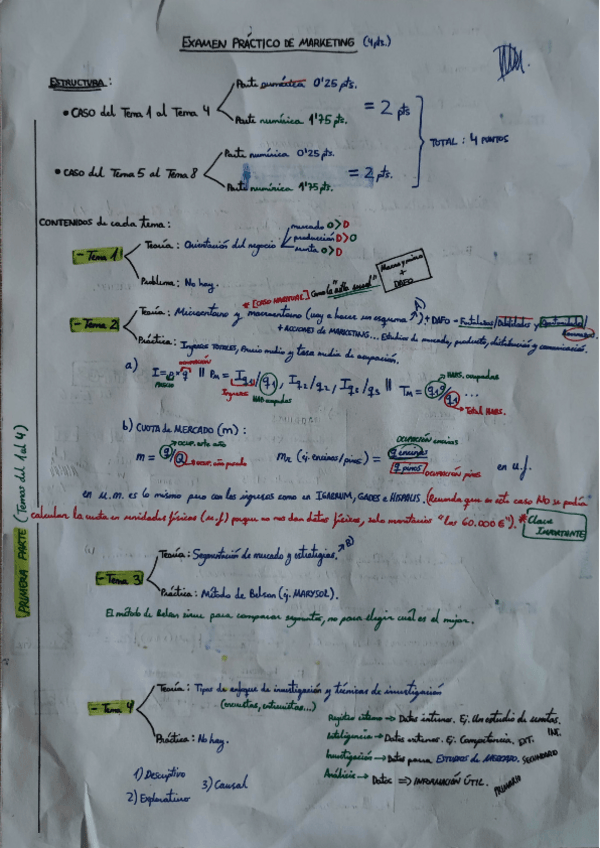 EXAMEN PRÁCTICO DE MARKETING (4 pts.)
ESTRUCTURA:
• CASO del Tema 1 al Tema 4
Parte numérica 0'25 pts.
Parte numérica 1'75 pts.
= 2 pts
• CASO del Tema 5 al Tema 8
Parte numérica 0'25 pts.
Parte numérica 1'75 pts.
= 2 pts.
TOTAL: 4 PUNTOS
CONTENIDOS de cada tema:
- Tema 1
Teoría: Orientación del negocio
mercado O>D
producción D>O
venta O>D
Problema: No hay.
* [CASO HABITUAL]
+
DAFO
- Tema 2
Teoría: Microentorno y macroentorno (voy a hacer un esquema) + DAFO - Fortalezas/Debilidades y Oportunidades/
+ ACCIONES de MARKETING... Estudios de mercado, producto, distribución y comunicación.
Práctica: Ingresos TOTALES, Precio medio y tasa media de ocupación.
a) I = p × q || PM = Iq1/q1, Iq2/q2, Iq3/q3 || TM = q1/q1 ...
OCUPACIÓN
PRECIO
Ingresos
HAB. ocupadas
HABS. ocupadas
Total HABS.
b) CUOTA de MERCADO (m):
m = q/Q
OCUP. este año
OCUP. año pasado
mr (ej. encinas/pinos) = q encinas / q pinos
OCUPACIÓN encinas
OCUPACIÓN pinos
en u.f.
en u.m. es lo mismo pero con los ingresos como en IGABRUM, GADES e HISPALIS. (Recuerda que en est. caso NO se podía
calcular la cuota en unidades físicas (u.f) porque no nos dan datos físicos, solo monetarios "los 60.000€"). * Clave
IMPORTANTE
PRIMERA PARTE (Temas del 1 al 4)
- Tema 3
Teoría: Segmentación de mercado y estrategias. B)
Práctica: Método de Belson (ej. MARYSOL).
El método de Belson sirve para comparar segmentos, no para elegir cuál es el mejor.
- Tema 4
Teoría: Tipos de enfoque de investigación y técnicas de investigación
(encuestas, entrevistas...)
Práctica: No hay.
Registro interno → Datos internos. Ej. Un estudio de ventas. INT.
Inteligencia → Datos externos. Ej. Competencia. EXT.
Investigación → Datos para ESTUDIOS DE MERCADO. SECUNDARIO
Análisis → Datos => INFORMACIÓN ÚTIL. PRIMARIO
1) Descriptivo
2) Explorativo
3) Causal